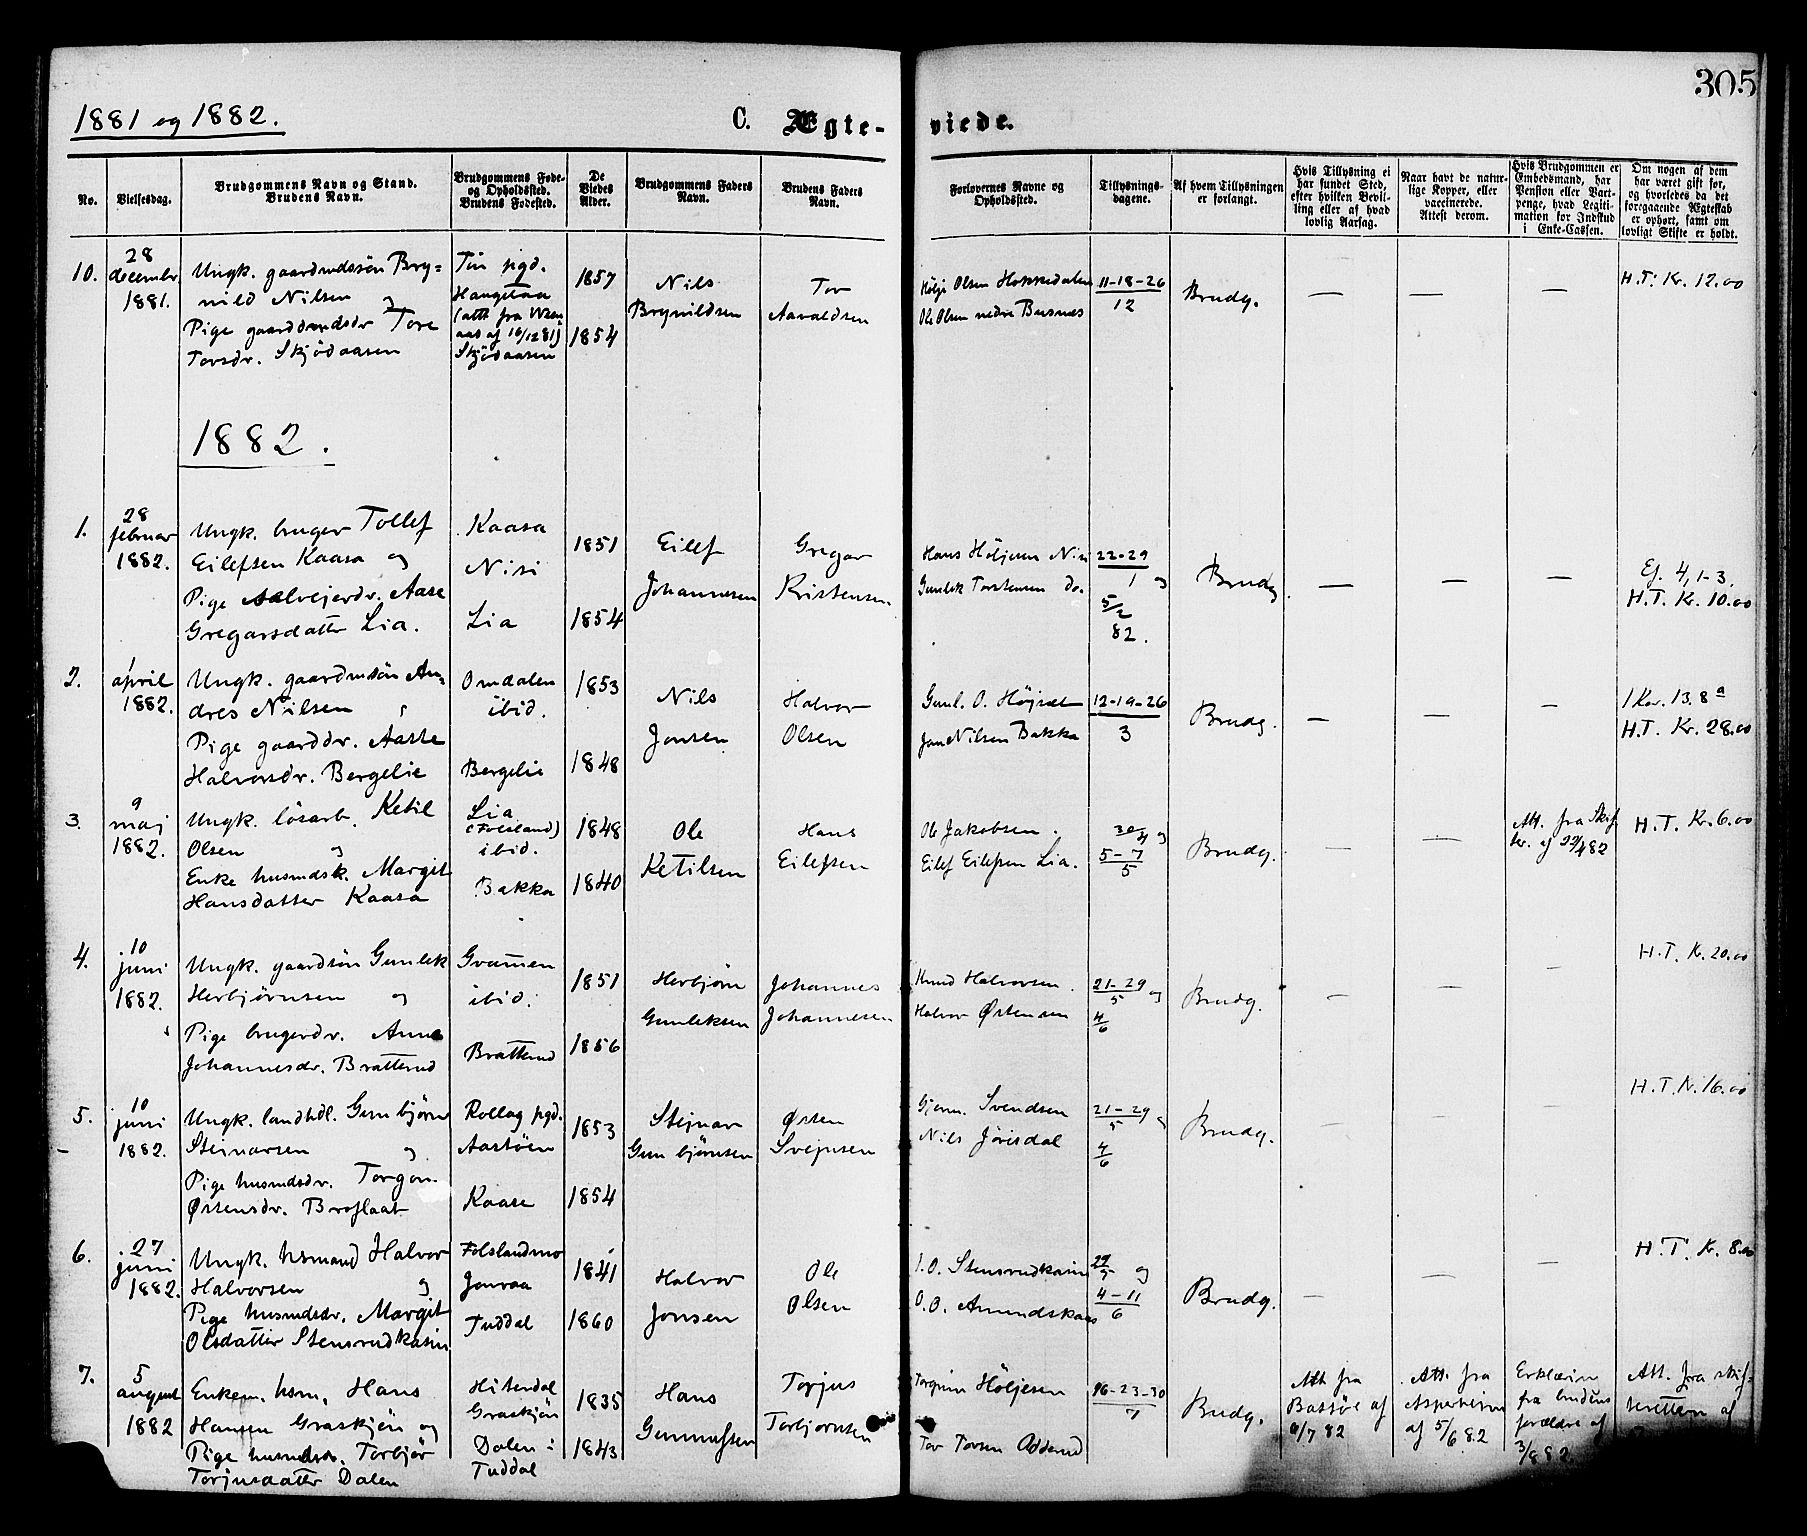 305
1881 og 1882.
C. Ægteviede.
No.
Vielsesdag.
Brudgommens Navn og Stand.
Brudens Navn.
Brudgommens Føde- og Opholdssted.
Brudens Fødested.
De Viedes Alder.
Brudgommens Faders Navn.
Brudens Faders Navn.
Forlovernes Navne og Opholdssted.
Tillysningsdagene.
Af hvem Tillysningen er forlangt.
Hvis Tillysning ei har fundet Sted, efter hvilken Bevilling eller af hvad lovlig Aarsag.
Naar havt de naturlige Kopper, eller vaccinerede. Attest derom.
Hvis Brudgommen er Embedsmand, har Pension eller Vartpenge, hvad Legitimation for Indskud i Enke-Cassen.
Om nogen af dem har været gift før, og hvorledes da det foregaaende Ægteskab er ophørt, samt om lovligt Skifte er holdt.
10.
28 decembr 1881.
Ungk. gaardmdssøn Bry-
nild Nilsen og
Pige gaardmdsdr Tore
Torsdr. Skjödaasen
Tin pgd.
Haugetaa
(att. fra
aas af 16/12 81)
Skjödaasen
1857
1854
Nils
Brynildsen
Tov
Aavaldsen
Hölje Olsen Hokkedalen
Ole Olsen nedre Busnæs
11-18-26
12
Brudg.
—
—
—
H.T. Kr. 12.00
1882.
1.
28 februar 1882.
Ungk. bruger Tollef
Eilefsen Kaasa og
Pige sælvejerdr. Aase
Gregarsdatter Lia.
Kaasa
Nisi
Lia
1851
1854
Eilef
Johannesen
Gregar
Kristensen
Hans Höljesen Nisi
Gunlek Torstensen do.
22-29
1 og
5/2
82.
Brudg.
—
—
—
Ej. 4, 1-3.
H.T. Kr. 10.00
2.
1 april 1882.
Ungk. gaardmdsön An-
dres Nilsen og
Pige gaarddr. Aaste
Halvorsdr. Bergelie
Omdalen
ibid.
Bergelie
1853
1848
Nils
Jonsen
Halvor
Olsen
Gunl. O. Höjsæt
Jon Nilsen Bakka
12-19-26
3
Brudg.
—
—
—
1 Kor. 13. 8a
H.T. Kr. 28.00
3.
9 maj 1882.
Ungk. lösarb. Ketil
Olsen og
Enke husmdsk. Margit
Hansdatter Kaasa
Lia
ibid.
Bakka
1848
1840
Ole
Ketilsen
Hans
Eilefsen
Ole Jakobsen.
Eilef Eilefsen Lia.
30/4 og
5-7
5
Brudg.
—
—
Att. fra Skif-
ter. af 29/4 82
H.T. Kr. 6.00
4.
10 juni 1882.
Ungk. gaardsön Gunlek
Herbjörnsen og
Pige brugerdr. Anne
Johannesdr. Bratterud
Gvammen
ibid.
Bratterud
1851
1856
Herbjörn
Gunleksen
Johannes
Johannesen
Knud Halvorsen.
Halvor Østensen
21-29
5 og
4
6
Brudg.
—
—
—
H.T. Kr. 20.00
5.
10 juni 1882.
Ungk. landhdl. Gunbjörn
Steinarsen og
Pige husmdsdr. Torgon
Østensdr. Broflaat
Rollag pgd.
Aastöen
Kaase
1853
1854
Steinar
Gunbjörnsen
Østen
Svejnsen
Gjerm. Svendsen
Nils Jörisdal
21-29
5 og
4
6
Brudg.
—
—
—
H.T. Kr. 16.00
6.
27 juni 1882.
Ungk. hsmand Halvor
Halvorsen og
Pige husmdsdr. Margit
Olsdatter Stensrudkasin
Folslandmo
Jonraa
Tuddal
1841
1860
Halvor
Jonsen
Ole
Olsen
I.O. Stensrudkasin
O.O. Amundskaas
29/5 og
4-11
6
Brudg.
—
—
—
H.T. Kr. 8.00
7.
5 august 1882
Enkem. hsm. Hans
Hansen Graskjön og
Pige husmdsdr. Torbjör
Torjusdatter Dalen
Hiterdal
Graskjön
Dalen i
Tuddal
1835
1843
Hans
Gunnufsen
Torjus
Torbjornsen
Torgrim Höljesen
Tov Tovsen Odderud
16-23-30
7
Brudg.
Att. fra
Bassöe af
/7 82
Att. fra
Asperheim
af 5/6 82
Erklæring
fra brudens
forældre af
3/8 82
Att. fra skif-
teretten af